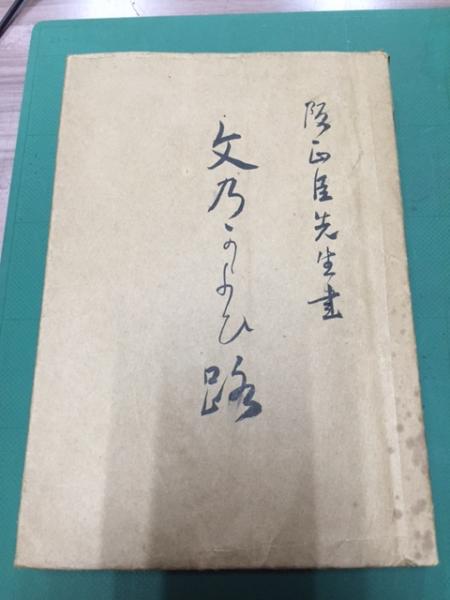 阪正臣先生書
文乃かよひ路